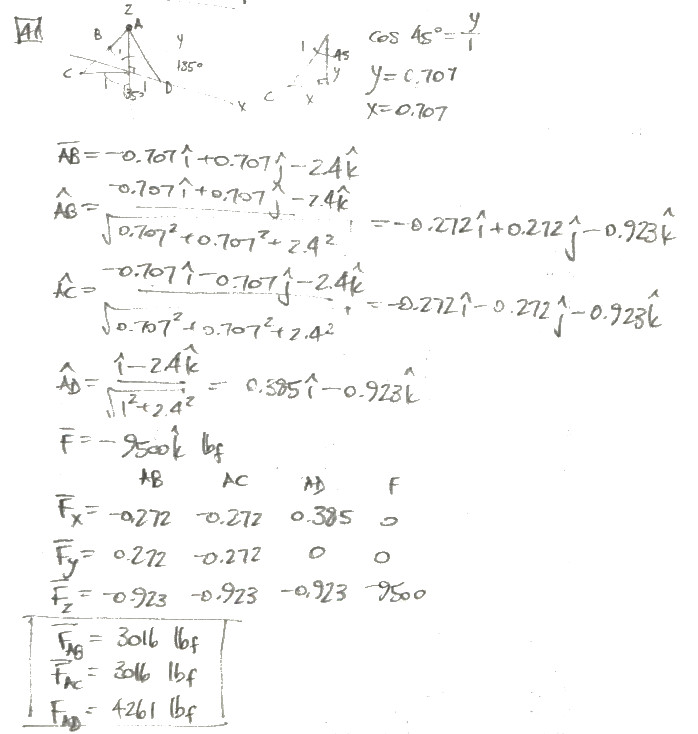 41
Z
A
B
y
135°
C
1
1
1
135°
D
x
1
45
y
C
x
cos 45° = y/1
y = 0.707
x = 0.707
AB̄ = -0.707î + 0.707ĵ - 2.4k̂
ÂB = (-0.707î + 0.707ĵ - 2.4k̂) / √(0.707² + 0.707² + 2.4²) = -0.272î + 0.272ĵ - 0.923k̂
ÂC = (-0.707î - 0.707ĵ - 2.4k̂) / √(0.707² + 0.707² + 2.4²) = -0.272î - 0.272ĵ - 0.923k̂
ÂD = (î - 2.4k̂) / √(1² + 2.4²) = 0.385î - 0.923k̂
F̄ = -9500k̂ lbf
AB AC AD F
F̄x = -0.272 -0.272 0.385 0
F̄y = 0.272 -0.272 0 0
F̄z = -0.923 -0.923 -0.923 -9500
F̄AB = 3016 lbf
F̄AC = 3016 lbf
FAD = 4261 lbf